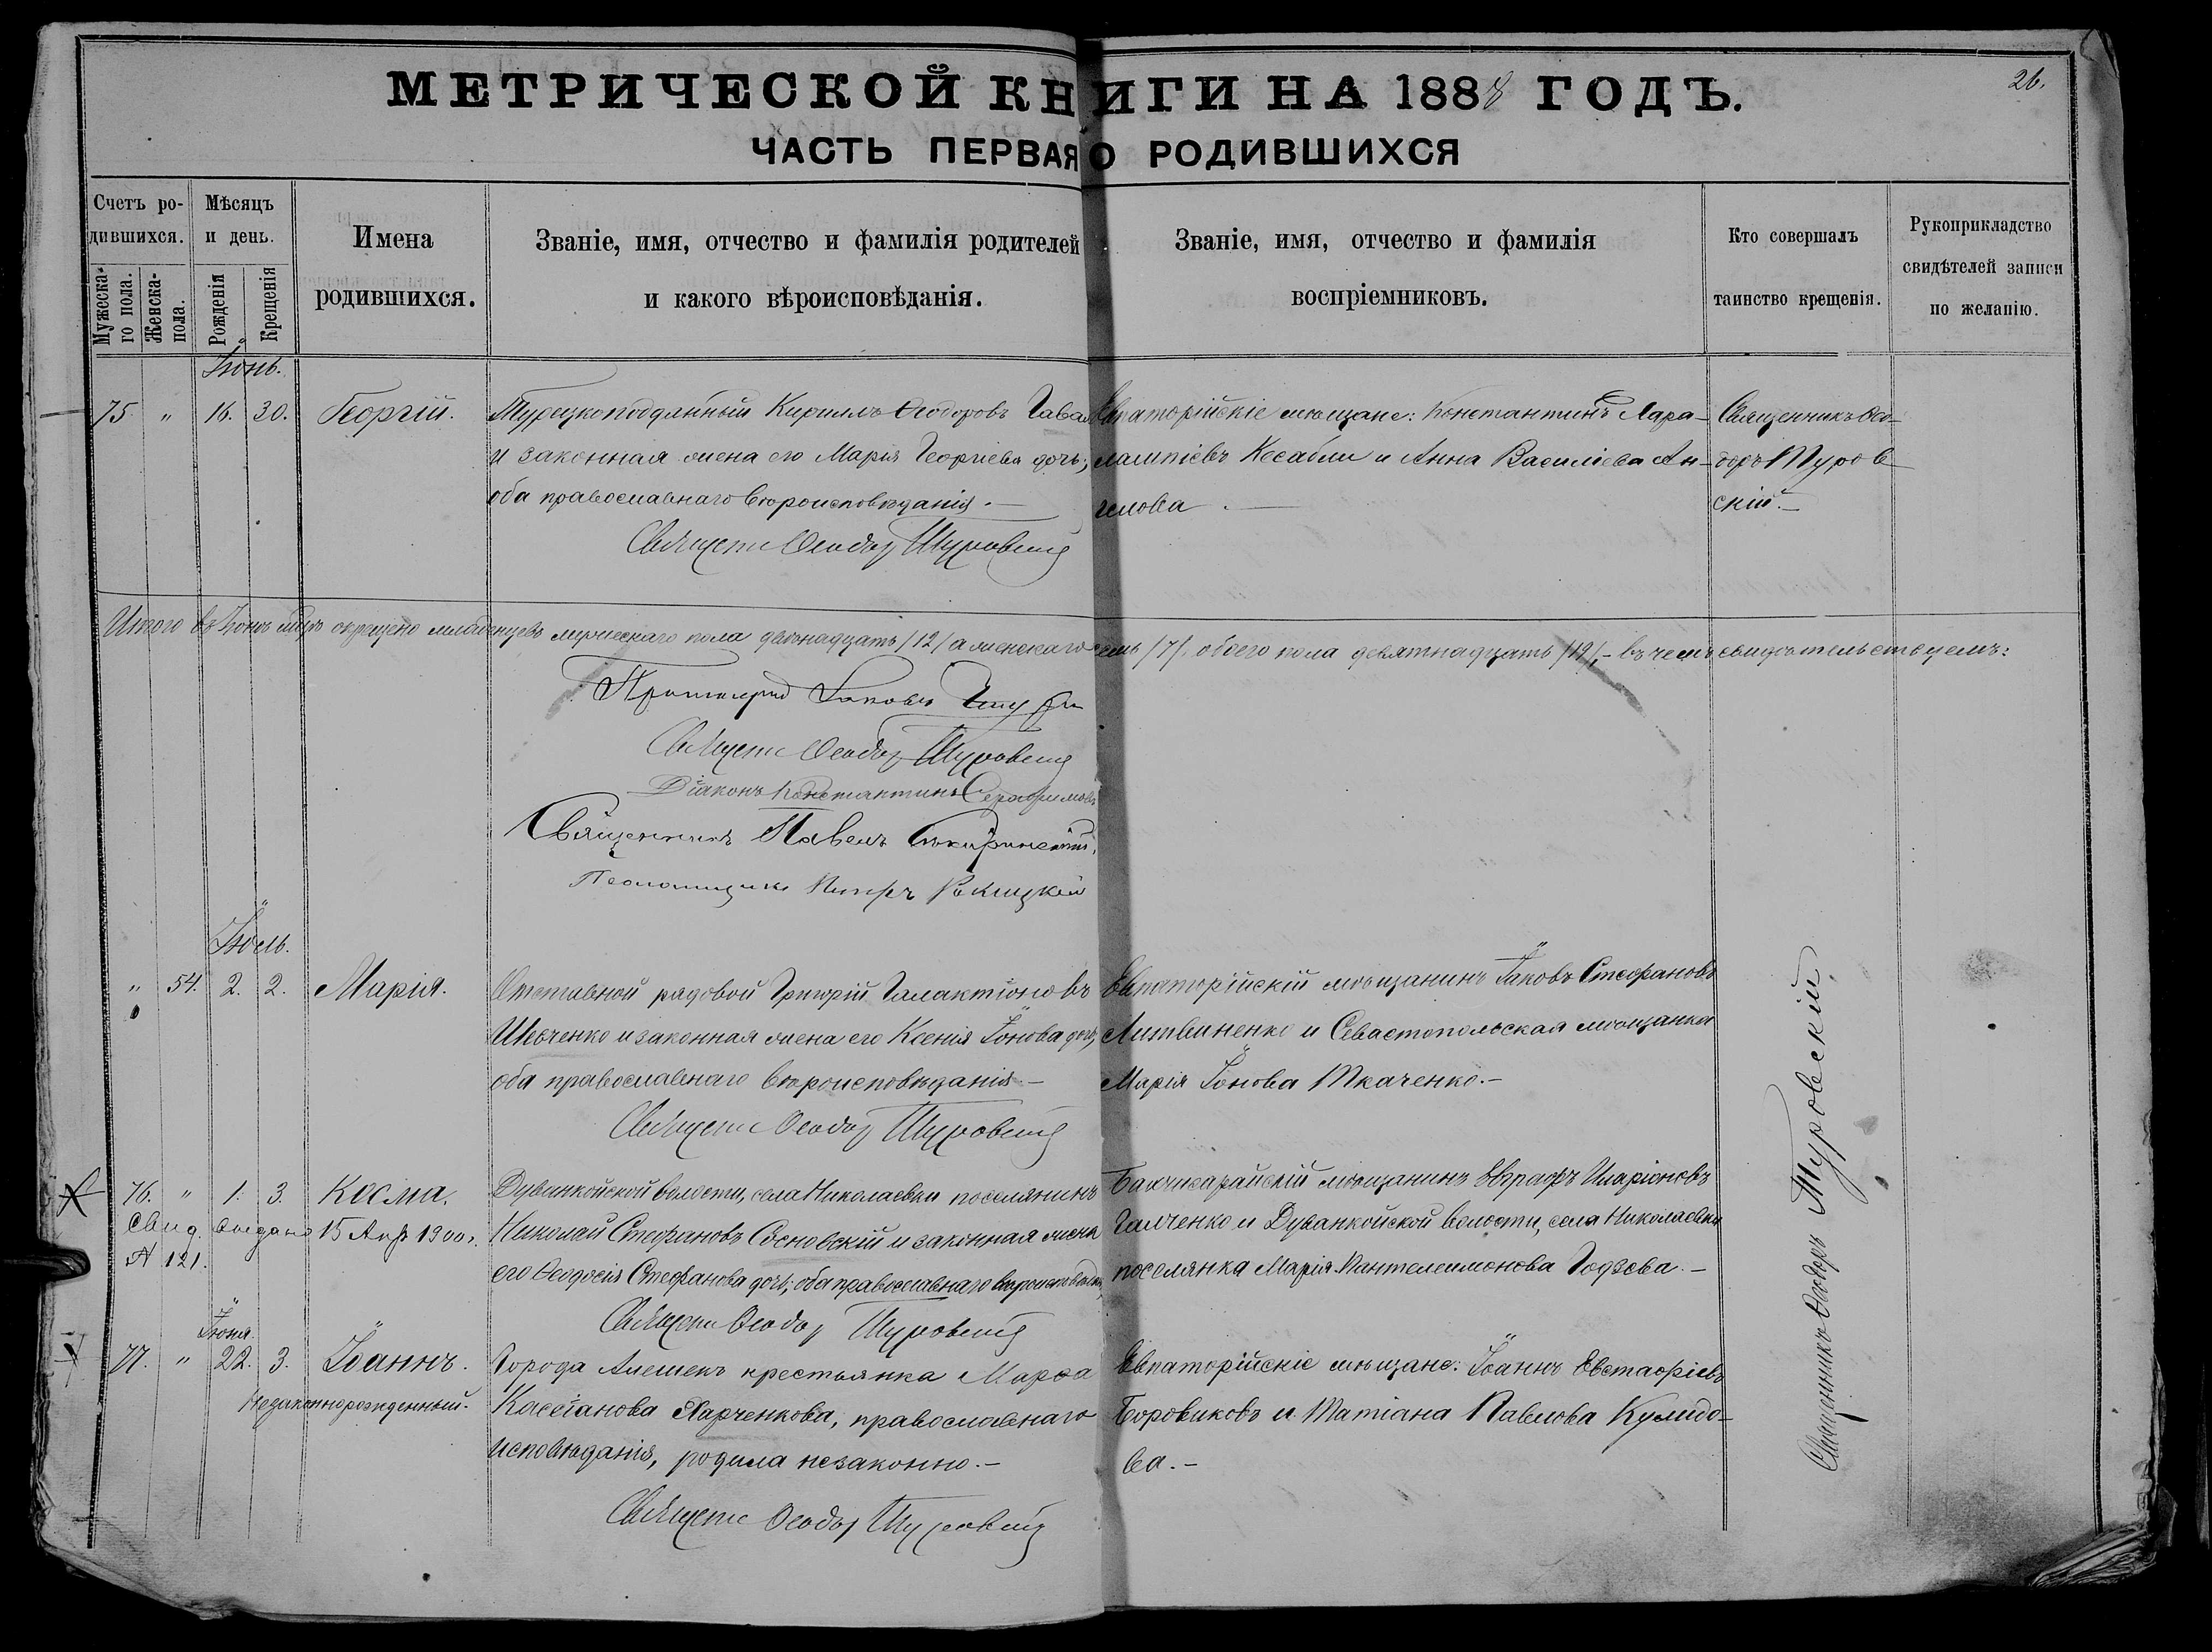 26.
МЕТРИЧЕСКОЙ КНИГИ НА 1888 ГОДЪ.
ЧАСТЬ ПЕРВАЯ О РОДИВШИХСЯ
Счетъ родившихся.
Мужеска-го пола.
Женска-пола.
Мѣсяцъ и день.
Рожденія
Крещенія
Имена родившихся.
Званіе, имя, отчество и фамилія родителей
и какого вѣроисповѣданія.
Званіе, имя, отчество и фамилія
воспріемниковъ.
Кто совершалъ
таинство крещенія.
Рукоприкладство
свидѣтелей записи
по желанію.
Іюнь.
75. " 16. 30. Георгій.
Турецкоподданный Кириллъ Ѳеодоровъ
и законная жена его Марія Георгіева дочь;
оба православнаго вѣроисповѣданія.—
Священ Ѳеодоръ Туровскій
Евпаторійскіе мѣщане: Константинъ Хара-
лампіевъ и Анна Василіева Ан-
гелова.—
Священникъ Ѳео-
доръ Туров-
скій.—
Итого въ Іюнѣ м-цѣ окрещено младенцевъ мужескаго пола двѣнадцать /12/ а женскаго семь /7/. обоего пола девятнадцать /19/,- въ чемъ свидѣтельствуемъ:
Протоіерей Іаковъ
Священ Ѳеодоръ Туровскій
Діаконъ Константинъ Серафимовъ
Священникъ Павелъ
Псаломщикъ Петръ
Іюль.
" 54. 2. 2. Марія.
Отставной рядовой Григорій Галактіоновъ
Шевченко и законная жена его Ксенія Іонова дочь,
оба православнаго вѣроисповѣданія.—
Священ Ѳеодоръ Туровскій
Евпаторійскій мѣщанинъ Іаковъ Стефановъ
Литвиненко и Севастопольская мѣщанка
Марія Іонова Ткаченко.—
76. " 1. 3. Косма.
Свид. выдано 15 Апр 1900 г.
№ 121.
Дуванкойской волости, села Николаевки поселянинъ
Николай Стефановъ Сосновскій и законная жена
его Ѳеодосія Стефанова дочь; оба православнаго вѣроисповѣд.
Священ Ѳеодоръ Туровскій
Бахчисарайскій мѣщанинъ Евграфъ Иларіоновъ
Галченко и Дуванкойской волости, села Николаевки
поселянка Марія Пантелеимонова Годзева.—
Іюня.
77. " 22. 3. Іоаннъ.
Незаконнорожденный.
Города Алешекъ крестьянка Марѳа
Кассіанова Харченкова, православнаго
исповѣданія, родила незаконно.—
Священ Ѳеодоръ Туровскій
Евпаторійскіе мѣщане: Іоаннъ Евстафіевъ
Боровиковъ и Татіана Павлова Кулидо-
ва.—
Священникъ Ѳеодоръ Туровскій